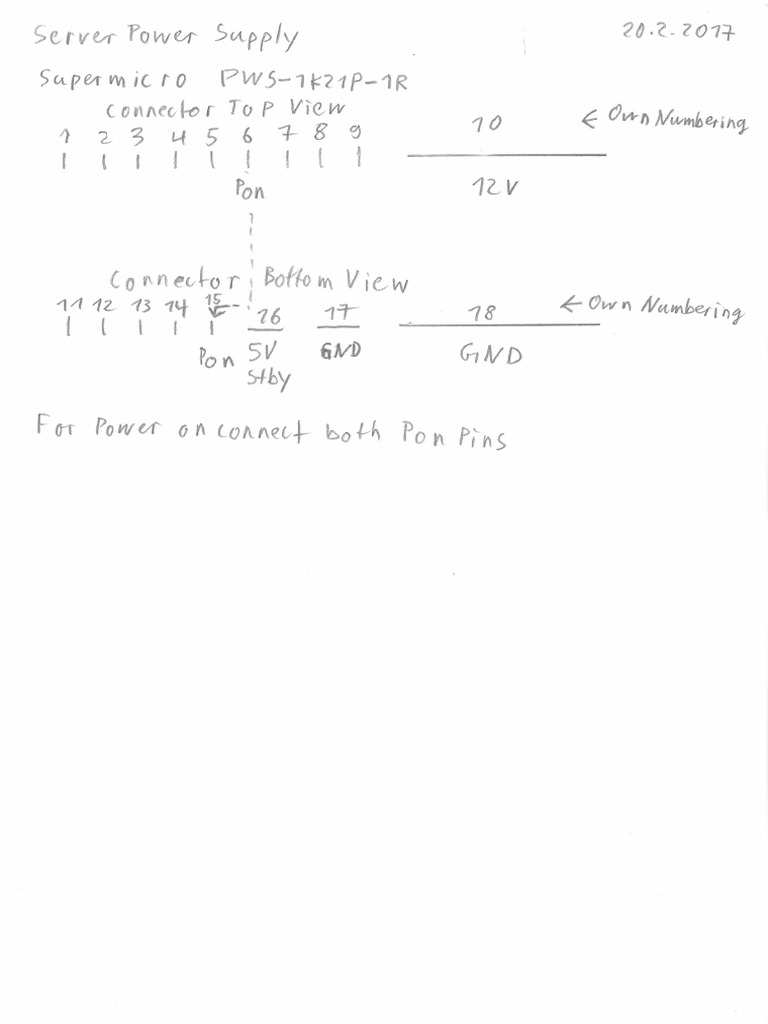 Server Power Supply 20.2.2017
Supermicro PWS-1K21P-1R
Connector Top View
1 2 3 4 5 6 7 8 9 10 ← Own Numbering
Pon 12V
Connector Bottom View
11 12 13 14 15 16 17 18 ← Own Numbering
Pon 5V GND GND
Stby
For Power on connect both Pon Pins